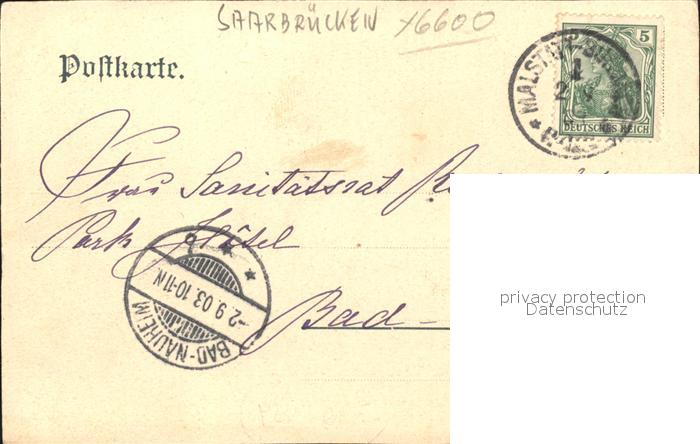 SAARBRÜCKEN X6600
Postkarte.
5
DEUTSCHES REICH
MALSTATT
Frau Sanitätsrat
Park Hôtel
Bad-
BAD-NAUHEIM
-2.9.03.10-11N.
privacy protection
Datenschutz